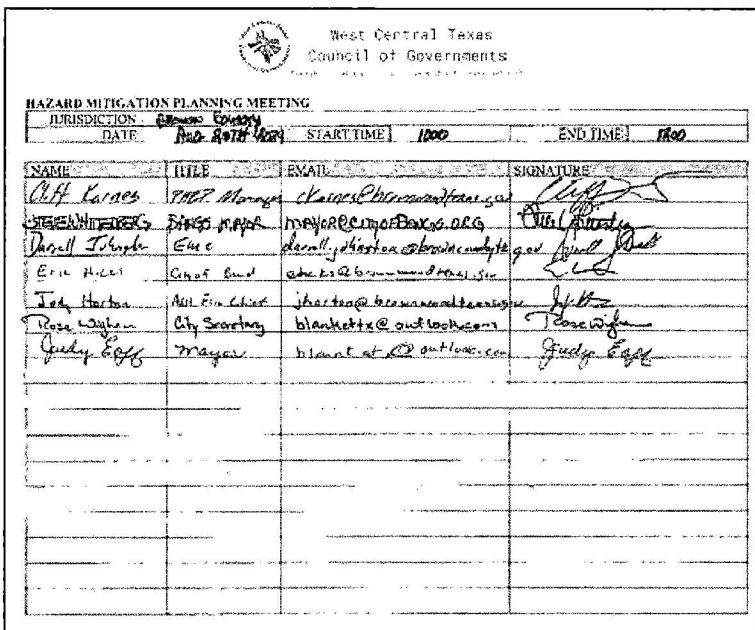 West Central Texas
Council of Governments
HAZARD MITIGATION PLANNING MEETING
JURISDICTION Brown County
DATE Aug 20TH 2024 START TIME 1000 END TIME 1200
NAME TITLE EMAIL SIGNATURE
Cliff Karnes Manager ckarnes@brownwoodtexas.gov
BANGS MAYOR MAYOR@CITYOFBANGS.ORG
Darrell Johnston EMC darrell.johnston@browncountytx.gov
Eric Hicks City of ehicks@brownwoodtexas.gov
Jody Horton Asst Fire Chief jhorton@brownwoodtexas.gov
Rose Wigham City Secretary blankettx@outlook.com Rose Wigham
Judy Mayor @outlook.com Judy